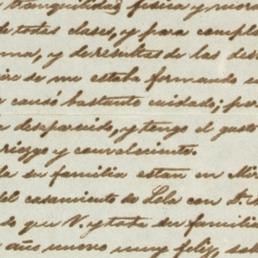 tranquilidad física y mor
de todas clases, y para comple
ma, y de resultas de las des
de me estaba formando u
causó bastante cuidado; pe
desaparecido, y tengo el gust
riozzo y convaleciente.
la su familia estan en Mi
del casamiento de Lela con D.
do que V. y toda su famili
año nuevo muy feliz, sal